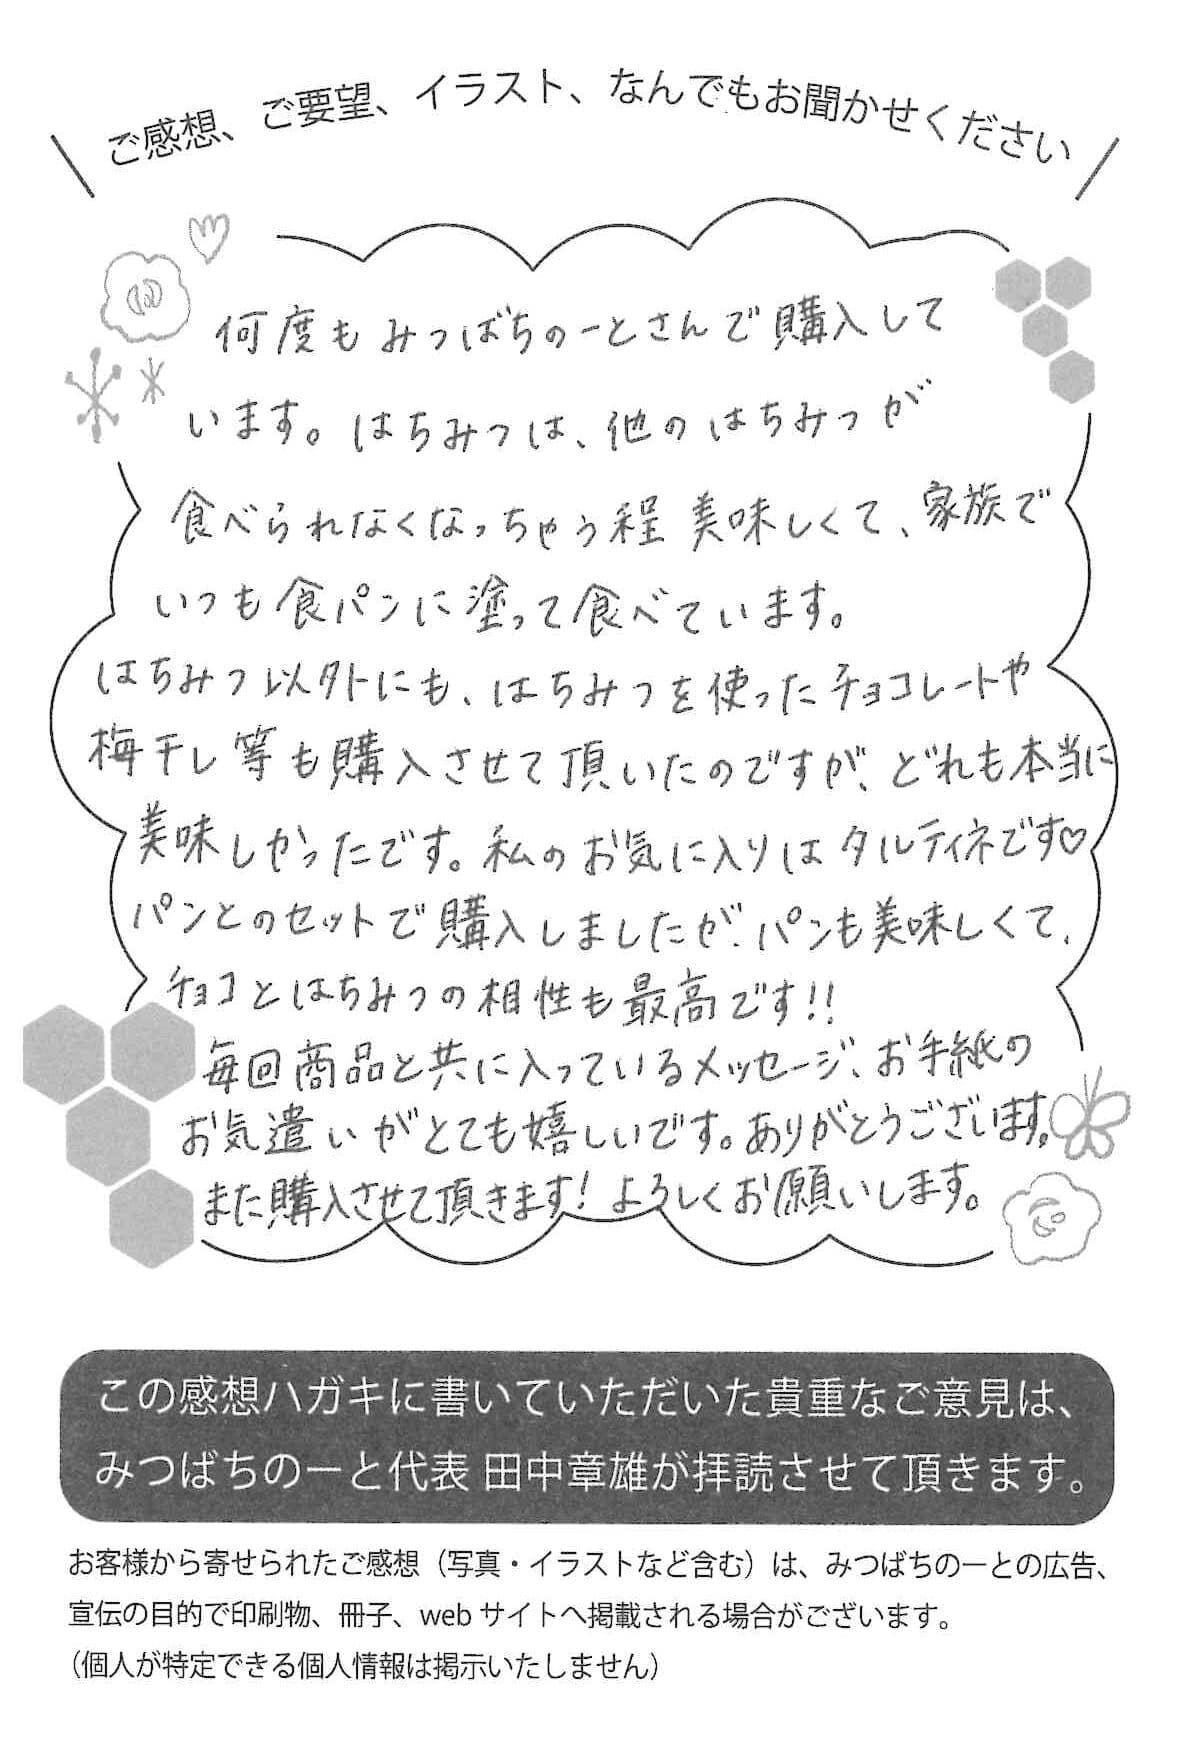 ご感想、ご要望、イラスト、なんでもお聞かせください
何度もみつばちのーとさんで購入して
います。はちみつは、他のはちみつが
食べられなくなっちゃう程美味しくて、家族で
いつも食パンに塗って食べています。
はちみつ以外にも、はちみつを使ったチョコレートや
梅干し等も購入させて頂いたのですが、どれも本当に
美味しかったです。私のお気に入りはタルティネです♡
パンとのセットで購入しましたが、パンも美味しくて、
チョコとはちみつの相性も最高です!!
毎回商品と共に入っているメッセージ、お手紙の
お気遣いがとても嬉しいです。ありがとうございます。
また購入させて頂きます!よろしくお願いします。
この感想ハガキに書いていただいた貴重なご意見は、
みつばちのーと代表 田中章雄が拝読させて頂きます。
お客様から寄せられたご感想（写真・イラストなど含む）は、みつばちのーとの広告、
宣伝の目的で印刷物、冊子、web サイトへ掲載される場合がございます。
（個人が特定できる個人情報は掲示いたしません）